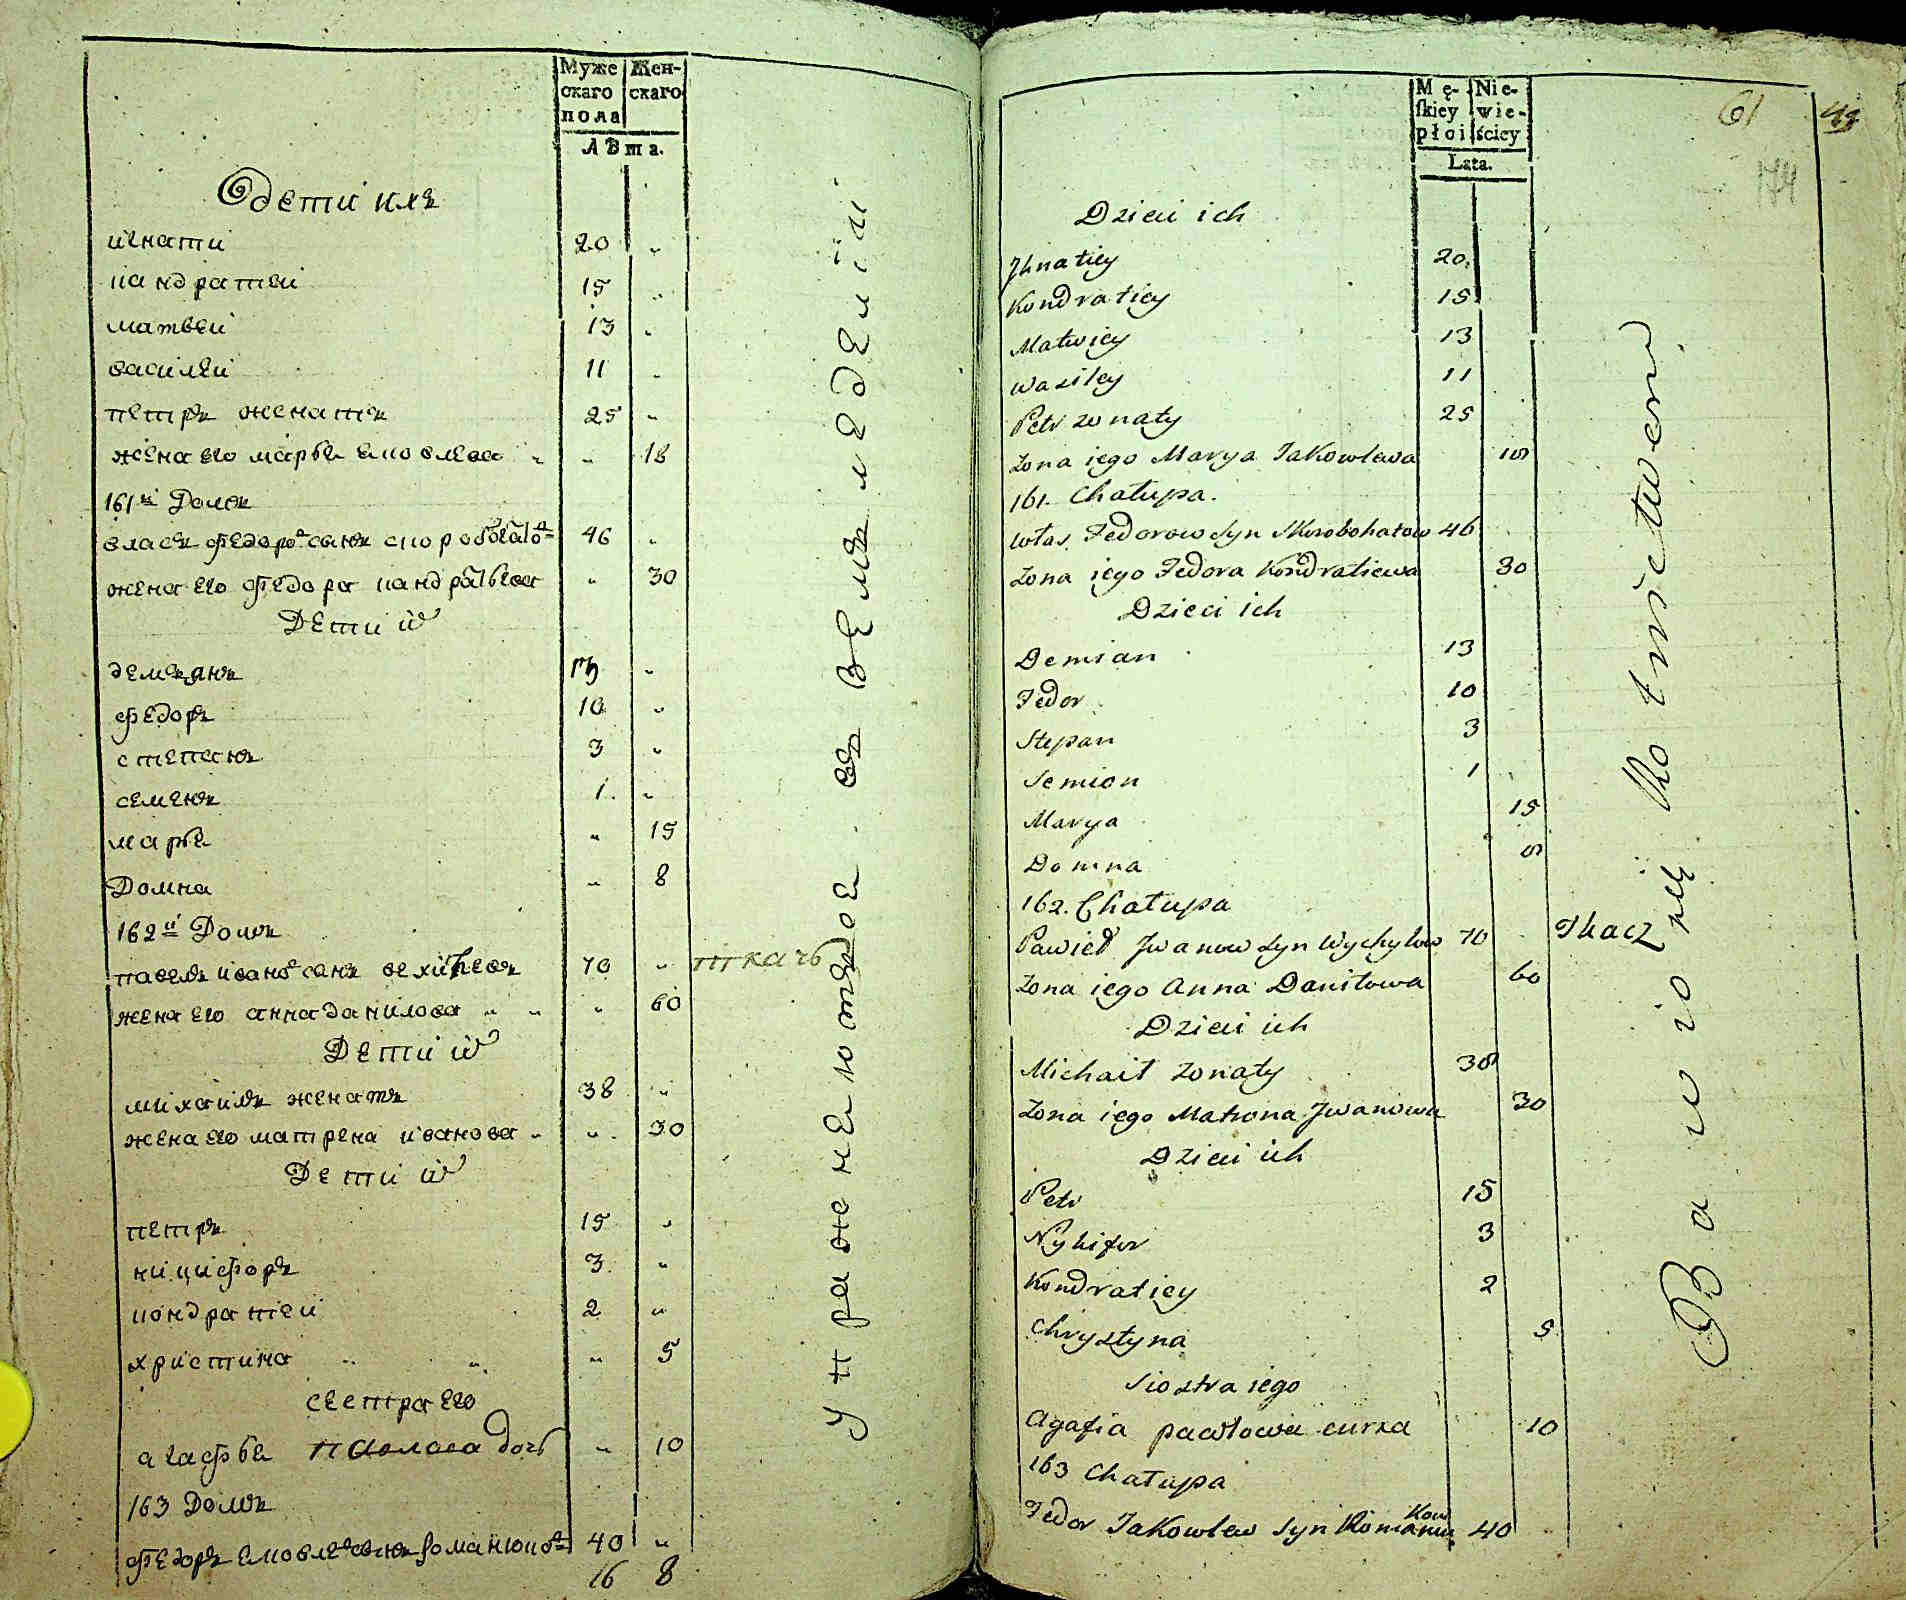 Муже Жен-
скаго скаго
пола
лѣта.
Ѻдети ихъ
игнати 20 "
кандратеи 15 "
матвеи 13 "
василеи 11 "
петръ женатъ 25 "
жена его марья яковлева " " 18
161й Домъ
власъ федоровъ сынъ скоробогатовъ 46 "
жена его федора кандратьева " 30
Дети их
демъянъ 13 "
федоръ 10 "
степанъ 3 "
семенъ 1. "
марья " 15
Домна " 8
162й Домъ
павелъ ивановъ сынъ 70 " ткачъ
жена его анна данилова " " " 60
Дети их
михаилъ женатъ 38 "
жена его матрена иванова " " 30
Дети их
петръ 15 "
никифоръ 3 "
кондратеи 2 "
христина " " " 5
сестра его
агафья павлова дочь " 10
163 Домъ
федоръ яковлевъ сынъ романковъ 40 "
16 8
Упражнеются въ земледелии
Mę- Nie-
ſkiey wie-
płci ściey
Lata.
61
174
Dzieci ich
Ihnatiey 20
Kondratiey 15
Matwiey 13
Wasiley 11
Petr żonaty 25
żona iego Marya Jakowlewa 18
161. Chałupa.
Włas Fedorow syn Skorobohatow 46
żona iego Fedora Kondratiewa 30
Dzieci ich
Demian 13
Fedor 10
Stepan 3
Semion 1
Marya 15
Domna 8
162. Chałupa
Pawieł Iwanow syn Wychylow 70 Tkacz
żona iego Anna Daniłowa 60
Dzieci ich
Michaił żonaty 38
żona iego Matrona Iwanowa 30
Dzieci ich
Petr 15
Nykifor 3
Kondratiey 2
Chrystyna 5
Siostra iego
Agafia pawłowa curka 10
163 Chałupa
Fedor Jakowlew syn Romankow 40
Bawią się Rolnictwem